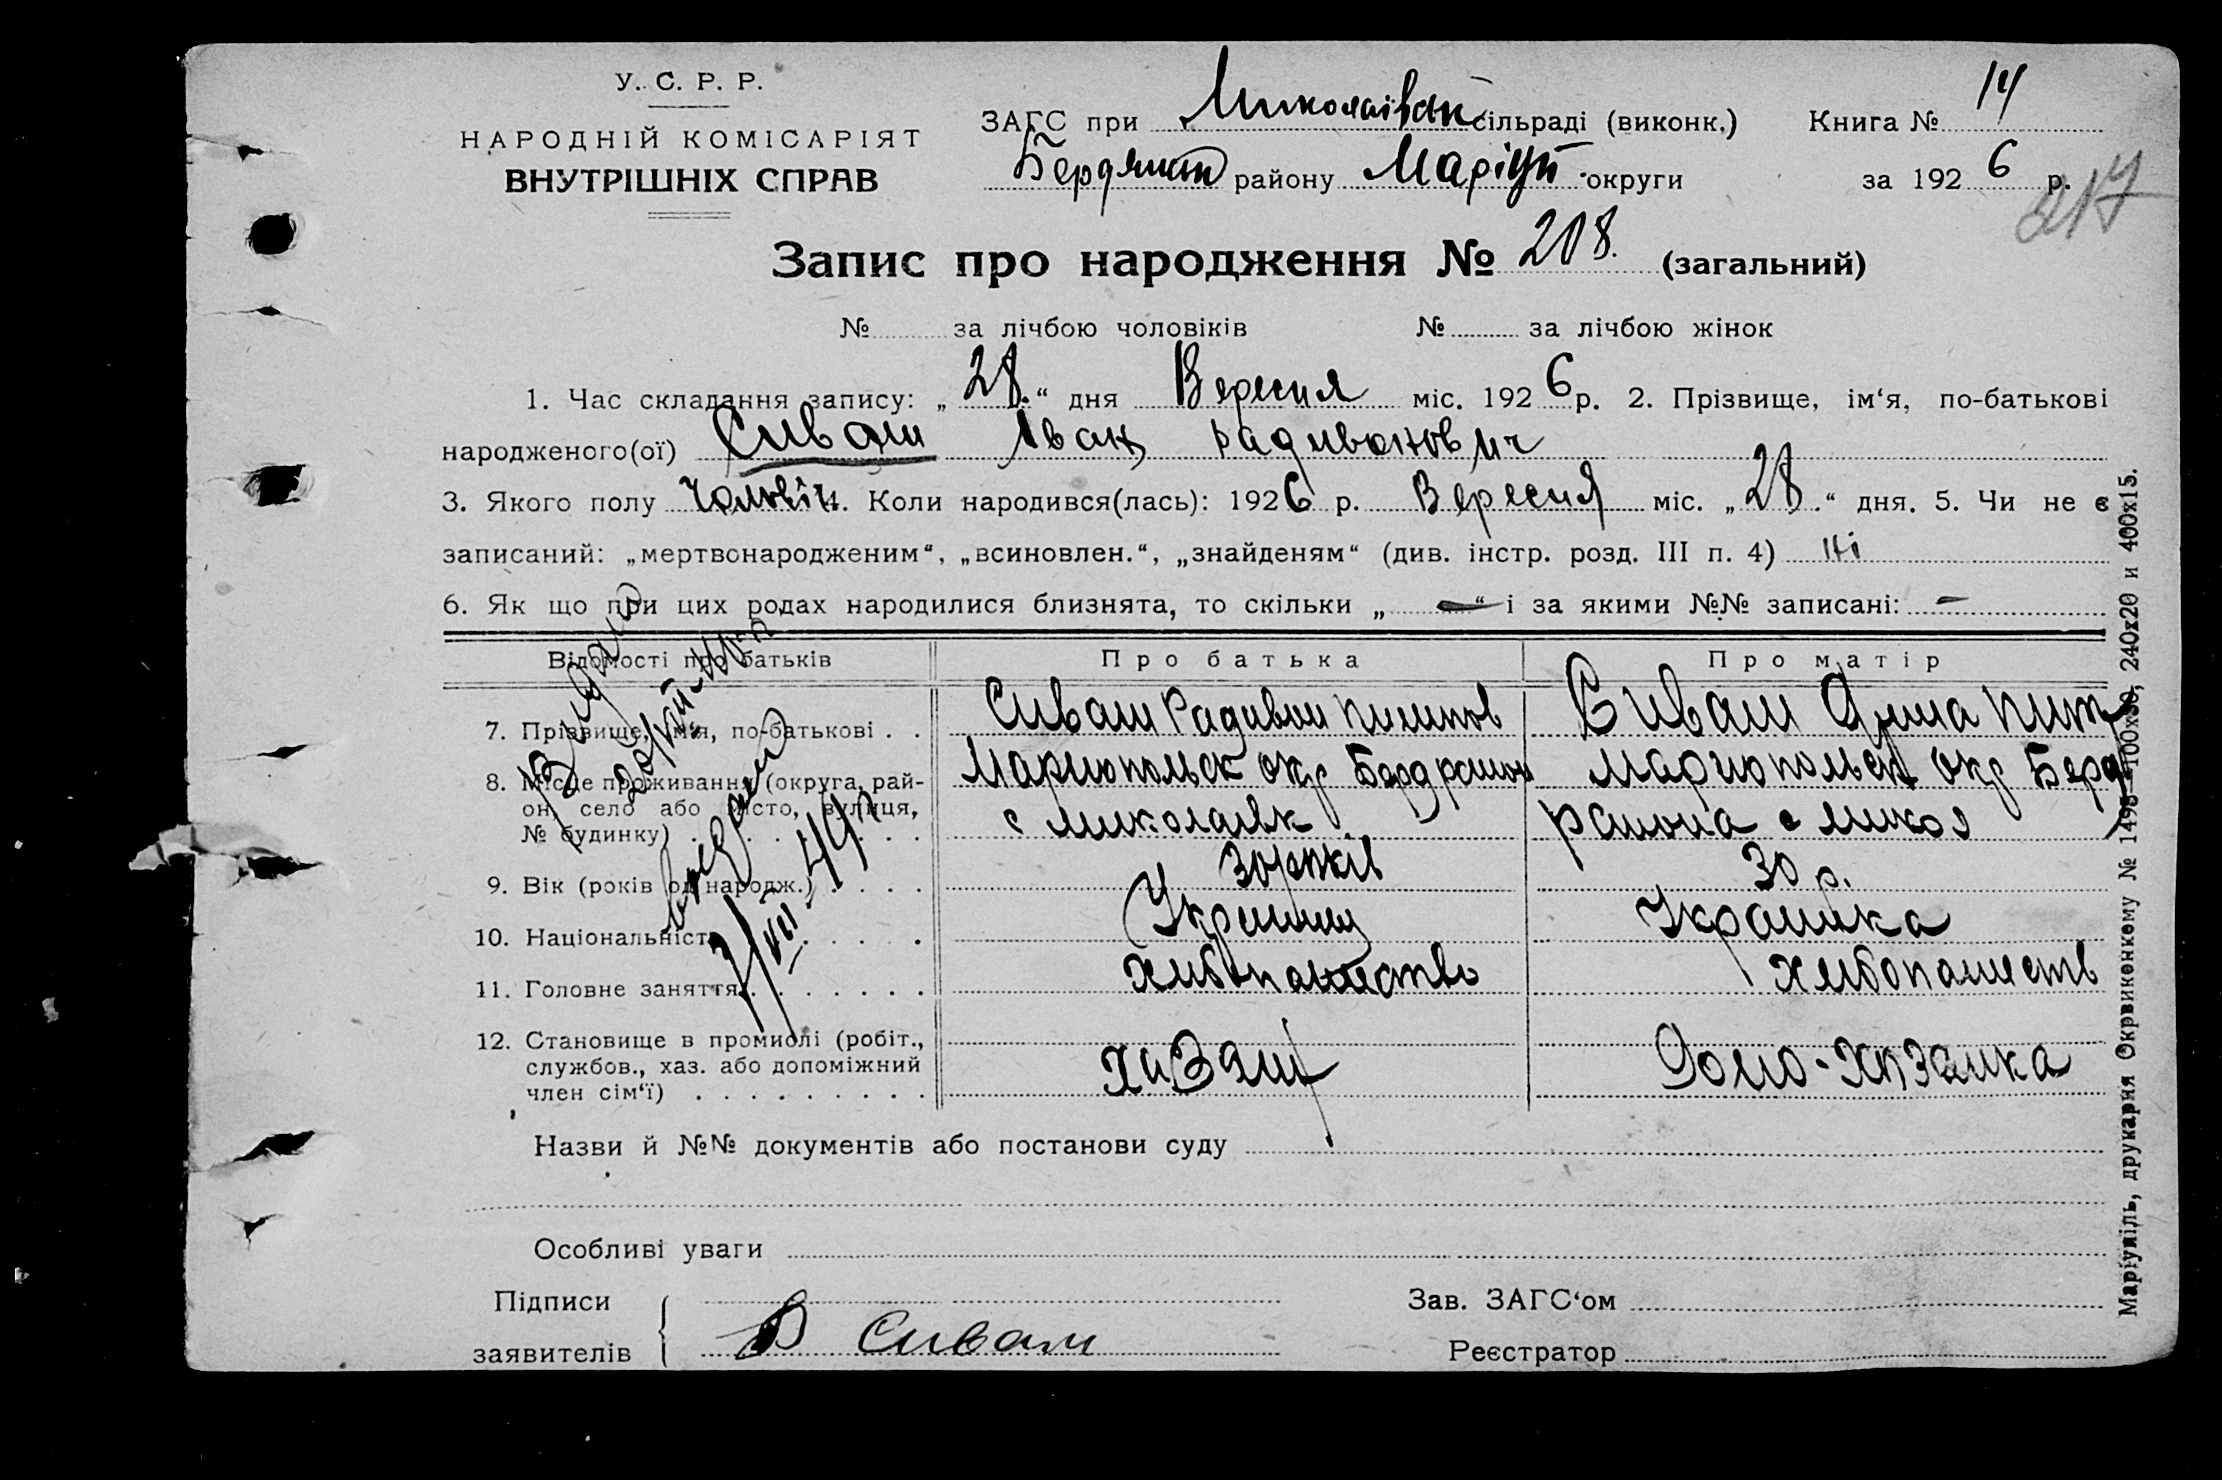 У. С. Р. Р.
НАРОДНІЙ КОМІСАРІЯТ
ВНУТРІШНІХ СПРАВ
ЗАГС при Миколаївськ сільраді (виконк.) Книга № 14
Бердянськ району Маріуп. округи за 1926 р.
217
Запис про народження № 208. (загальний)
№ за лічбою чоловіків № за лічбою жінок
1. Час складання запису: „28.“ дня Вересня міс. 1926 р. 2. Прізвище, ім‘я, по-батькові
народженого(ої) Сиваш Іван Радивонович
3. Якого полу Чоловіч. Коли народився(лась): 1926 р. Вересня міс. „28.“ дня. 5. Чи не є
записаний: „мертвонародженим“, „всиновлен.“, „знайденям“ (див. інстр. розд. III п. 4) ні
6. Як що при цих родах народилися близнята, то скільки „ — “ і за якими №№ записані: —
Відомості про батьків Про батька Про матір
7. Прізвище, ім‘я, по-батькові . . Сиваш Радивон Сиваш
8. Місце проживання (округа, рай-
он, село або місто, вулиця,
№ будинку) . . . . . .
Мариопольск окр Берд район
с миколаявк
Мариопольск окр Берд
района с микол
9. Вік (років од народж.) . . . . 30 років 30 р.
10. Національність . . . . . Українец Українка
11. Головне заняття . . . . . . . Хлибопашество Хлибопашеств
12. Становище в промислі (робіт.,
службов., хаз. або допоміжний
член сім‘ї) . . . . . . . . .
Хазяин Домо-Хазаика
Видано
VII 49
Назви й №№ документів або постанови суду
Особливі уваги
Підписи
заявителів Сиваш
Зав. ЗАГС‘ом
Реєстратор
Маріупіль, друкарня Окрвиконкому № 1498—100х30, 240х20 и 400х15.